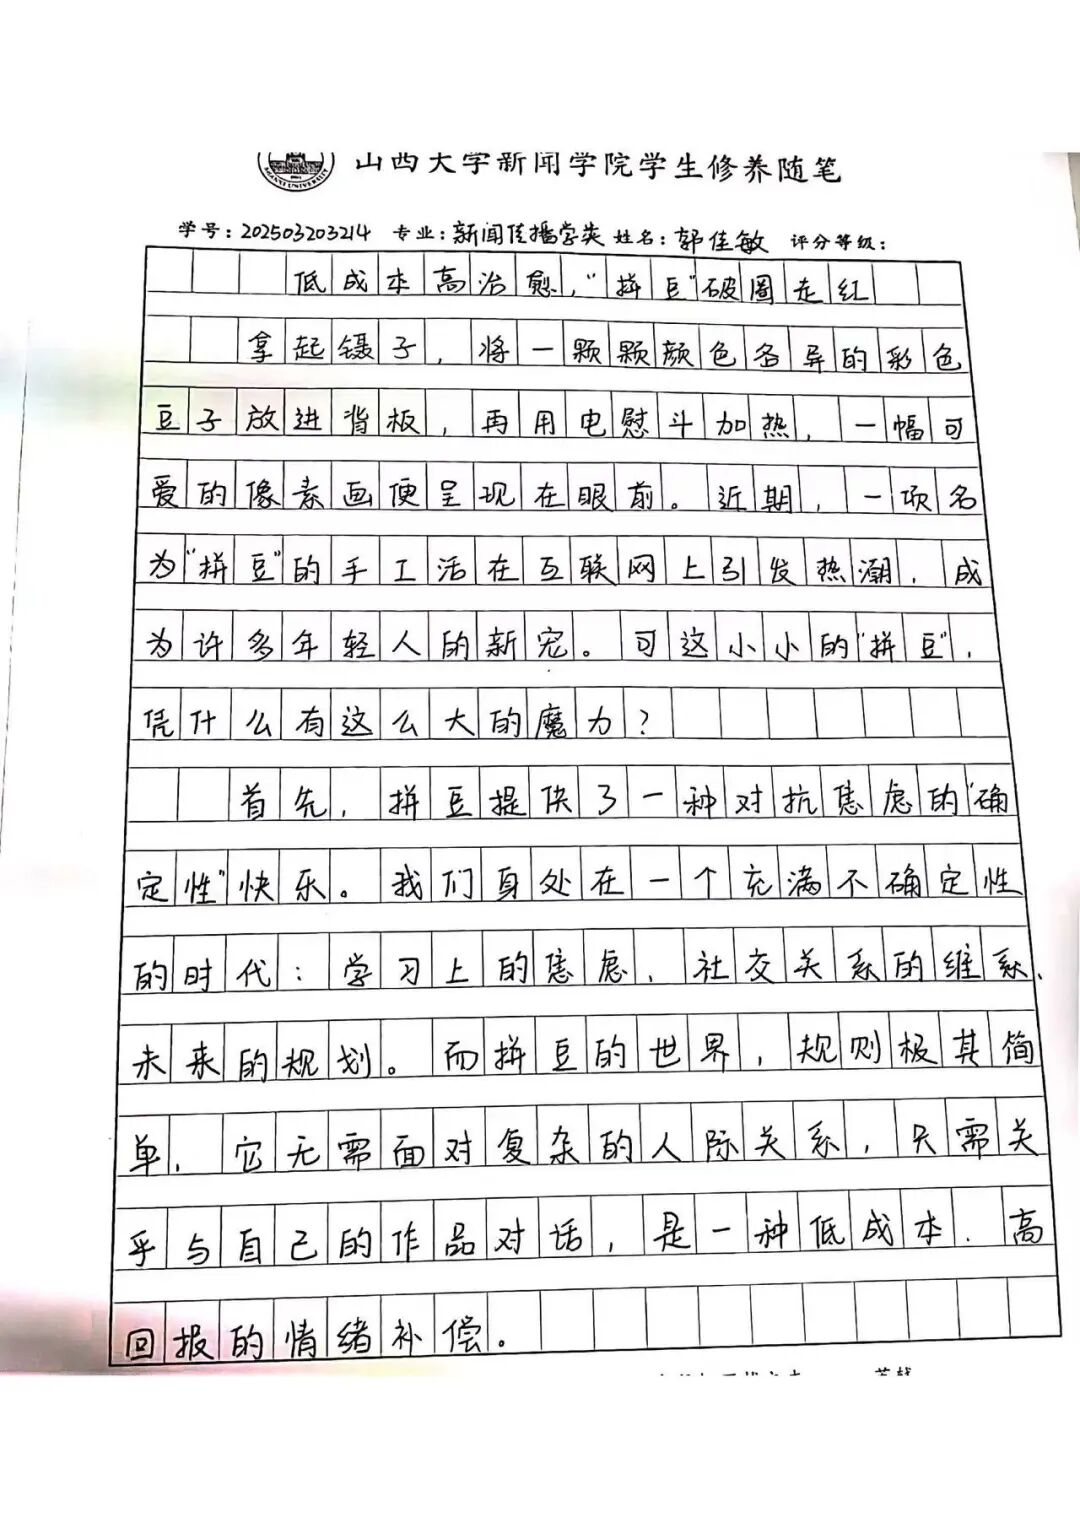 山西大学新闻学院学生修养随笔
学号：202503203214 专业：新闻传播学类 姓名：郭佳敏 评分等级：
低成本高治愈，“拼豆”破圈走红
拿起镊子，将一颗颗颜色各异的彩色
豆子放进背板，再用电熨斗加热，一幅可
爱的像素画便呈现在眼前。近期，一项名
为“拼豆”的手工活在互联网上引发热潮，成
为许多年轻人的新宠。可这小小的“拼豆”，
凭什么有这么大的魔力？
首先，拼豆提供了一种对抗焦虑的“确
定性”快乐。我们身处在一个充满不确定性
的时代：学习上的焦虑、社交关系的维系、
未来的规划。而拼豆的世界，规则极其简
单，它无需面对复杂的人际关系，只需关
乎与自己的作品对话，是一种低成本、高
回报的情绪补偿。